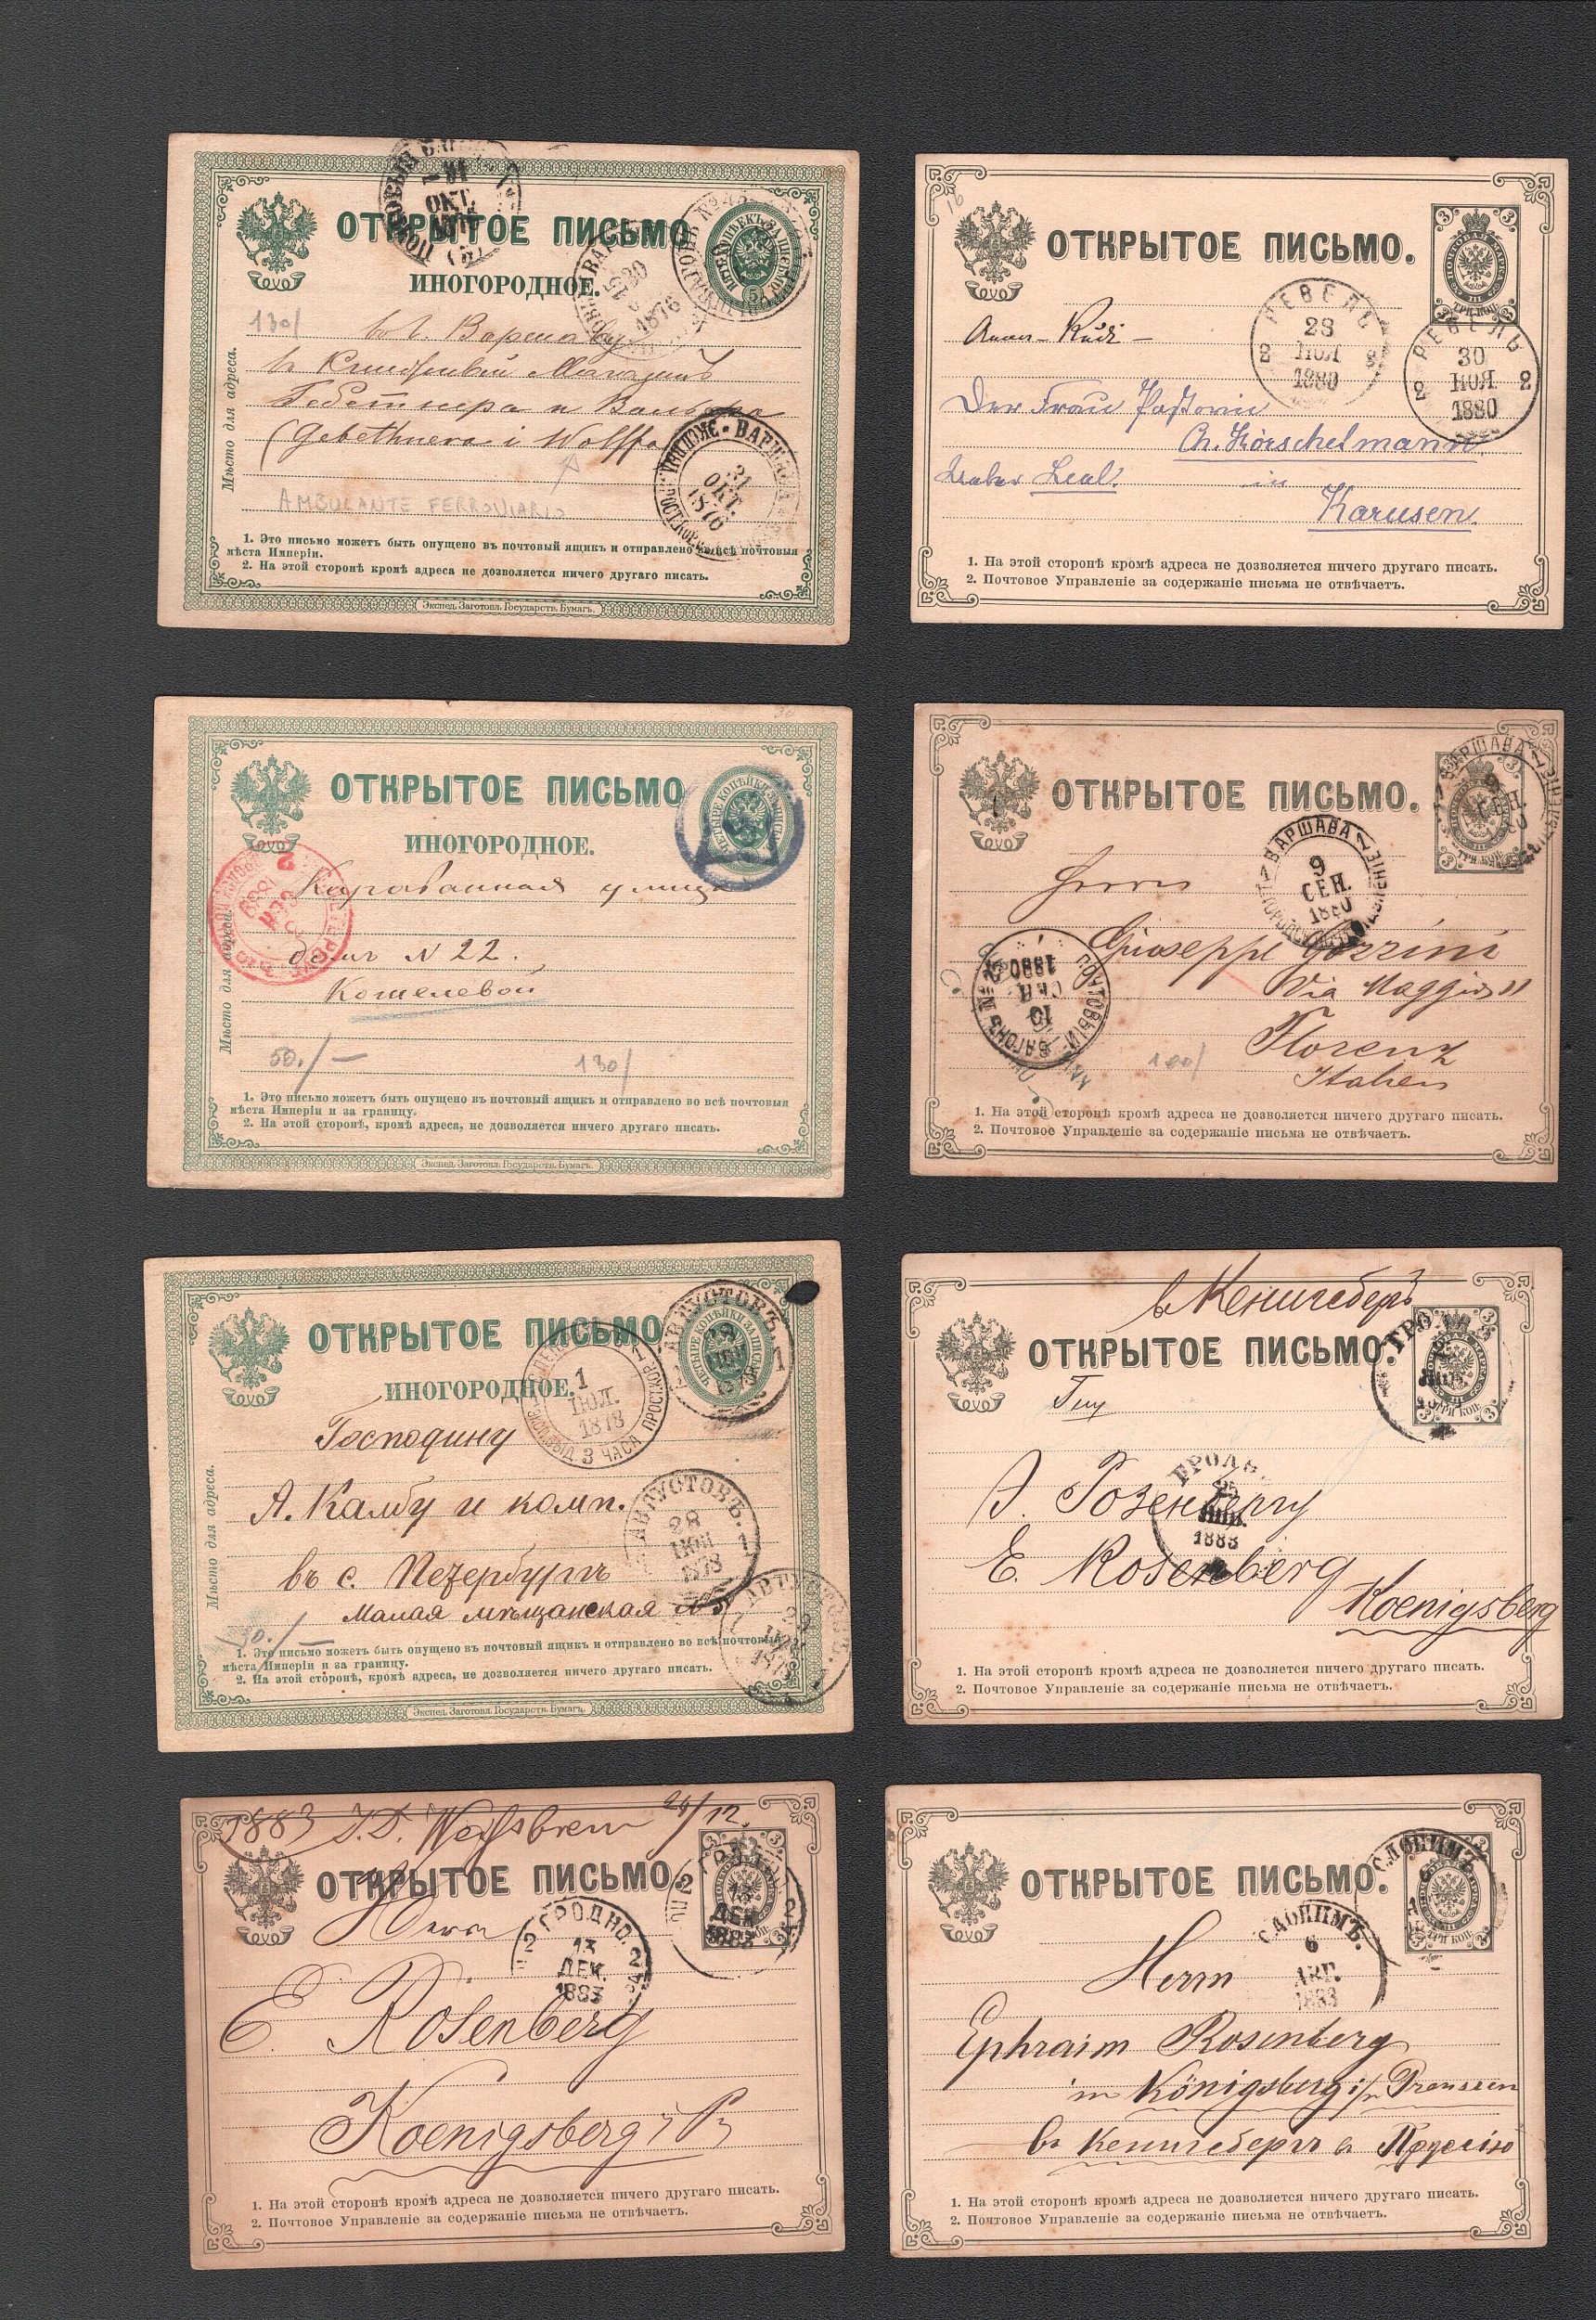 ОТКРЫТОЕ ПИСЬМО
ИНОГОРОДНОЕ.
ОКТ.
1876
130/
въ г. Варшаву
Гебетнера и Вольфа
(Gebethnera i Wolffa
ВАРШАВА
31
ОКТ.
1876
AMBULANTE FERROVIARIO
Мѣсто для адреса.
1. Это письмо можетъ быть опущено въ почтовый ящикъ и отправлено во всѣ почтовыя
мѣста Имперіи.
2. На этой сторонѣ кромѣ адреса не дозволяется ничего другаго писать.
Экспед. Заготовл. Государств. Бумагъ.
16
ОТКРЫТОЕ ПИСЬМО.
ТРИ КОП.
РЕВЕЛЬ
28
НОЯ
1880
2 2
РЕВЕЛЬ
30
НОЯ
1880
2 2
Der Frau Pastorin
Ch. Hörschelmann
Leal.
in
Karusen.
1. На этой сторонѣ кромѣ адреса не дозволяется ничего другаго писать.
2. Почтовое Управленіе за содержаніе письма не отвѣчаетъ.
ОТКРЫТОЕ ПИСЬМО
ИНОГОРОДНОЕ.
Караванная улица
домъ N 22.
Кошелевой
50./—
130/
Мѣсто для адреса.
1. Это письмо можетъ быть опущено въ почтовый ящикъ и отправлено во всѣ почтовыя
мѣста Имперіи и за границу.
2. На этой сторонѣ, кромѣ адреса, не дозволяется ничего другаго писать.
Экспед. Заготовл. Государств. Бумагъ.
ОТКРЫТОЕ ПИСЬМО.
ТРИ КОП.
ВАРШАВА
9
СЕН.
ВАРШАВА
9
СЕН.
1880
Herrn
Giuseppe Gozzini
Via Maggio 11
Florenz
Italien
ПОЧТОВЫЙ ВАГОНЪ
10
СЕН.
1880
1. На этой сторонѣ кромѣ адреса не дозволяется ничего другаго писать.
2. Почтовое Управленіе за содержаніе письма не отвѣчаетъ.
ОТКРЫТОЕ ПИСЬМО
ИНОГОРОДНОЕ.
АВГУСТОВЪ.
1
ІЮЛ.
1878
3 ЧАСА
Господину
А. Калбу и комп.
въ с. Петербургъ
Малая мѣщанская
АВГУСТОВЪ.
28
ІЮН
1878
АВГУСТОВЪ.
Мѣсто для адреса.
1. Это письмо можетъ быть опущено въ почтовый ящикъ и отправлено во всѣ почтовыя
мѣста Имперіи и за границу.
2. На этой сторонѣ, кромѣ адреса, не дозволяется ничего другаго писать.
Экспед. Заготовл. Государств. Бумагъ.
в Кенигсберъ
ОТКРЫТОЕ ПИСЬМО.
ТРИ КОП.
Гну
Э. Розенбергу
E. Rosenberg
Koenigsberg
ГРОДН
1883
1. На этой сторонѣ кромѣ адреса не дозволяется ничего другаго писать.
2. Почтовое Управленіе за содержаніе письма не отвѣчаетъ.
1883
ОТКРЫТОЕ ПИСЬМО.
ГРОДНО
13
ДЕК.
1883
ГРОДНО.
13
ДЕК.
1883
2 2
Herrn
E. Rosenberg
Koenigsberg i Pr
1. На этой сторонѣ кромѣ адреса не дозволяется ничего другаго писать.
2. Почтовое Управленіе за содержаніе письма не отвѣчаетъ.
ОТКРЫТОЕ ПИСЬМО.
ТРИ КОП.
СЛОНИМЪ
СЛОНИМЪ.
6
АВГ.
1883
Herrn
Ephraim Rosenberg
in Königsberg i/n Preussen
въ Кенигсбергъ в Пруссію
1. На этой сторонѣ кромѣ адреса не дозволяется ничего другаго писать.
2. Почтовое Управленіе за содержаніе письма не отвѣчаетъ.